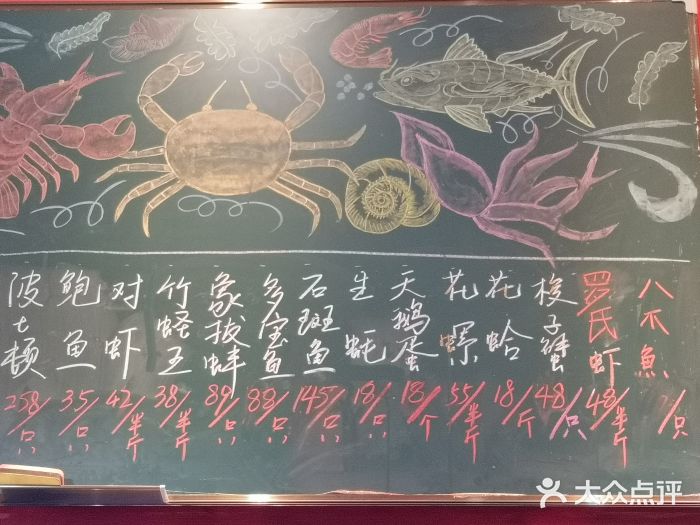 波士顿 258/只
鲍鱼 35/只
对虾 42/半斤
竹蛏王 38/半斤
象拔蚌 89/只
多宝鱼 88/只
石斑鱼 145/只
生蚝 18/只
天鹅蛋 18/个
花螺 55/半斤
花蛤 18/斤
梭子蟹 48/只
罗氏虾 48/半斤
八爪魚 /只
大众点评